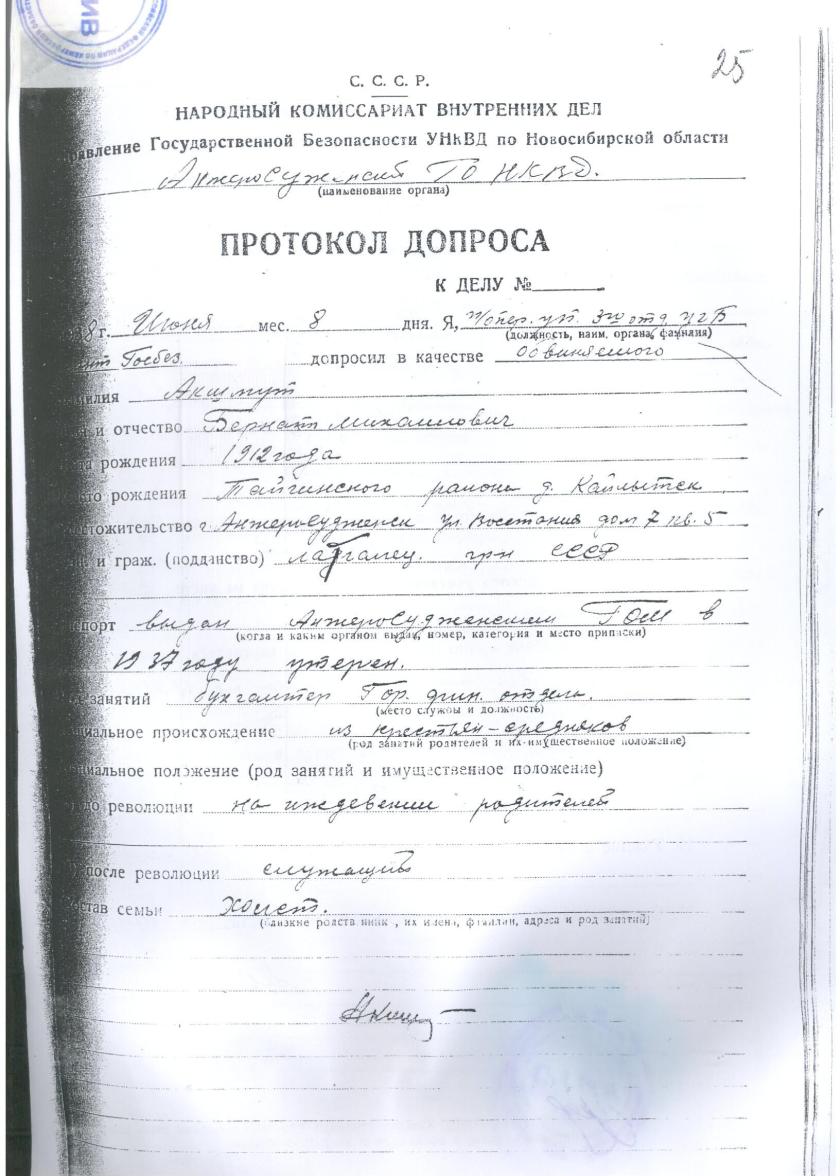 ИВ
25
С. С. С. Р.
НАРОДНЫЙ КОМИССАРИАТ ВНУТРЕННИХ ДЕЛ
равление Государственной Безопасности УНКВД по Новосибирской области
АнжероСудженский ГО НКВД.
(наименование органа)
ПРОТОКОЛ ДОПРОСА
К ДЕЛУ №
8 г. Июня мес. 8 дня. Я, п/опер. уп. 3го отд. УГБ
(должность, наим. органа, фамилия)
ант Госбез. допросил в качестве обвиняемого
милия Акшмут
и отчество Бернат Михайлович
рождения 1912 года
то рождения Тайгинского района д. Кайлытск
стожительство г Анжеросудженск ул. Восстания дом 7 кв. 5
и граж. (подданство) латгалец. грн СССР
порт выдан АнжероСудженским ГОМ в
(когда и каким органом выдан, номер, категория и место приписки)
1937 году утерен.
занятий бухгалтер Гор. фин. отдела.
(место службы и должность)
циальное происхождение из крестьян-средняков
(род занятий родителей и их имущественное положение)
циальное положение (род занятий и имущественное положение)
до революции на иждевении родителей
после революции служащий
став семьи Холост.
(близкие родственники, их имена, фамилии, адреса и род занятий)